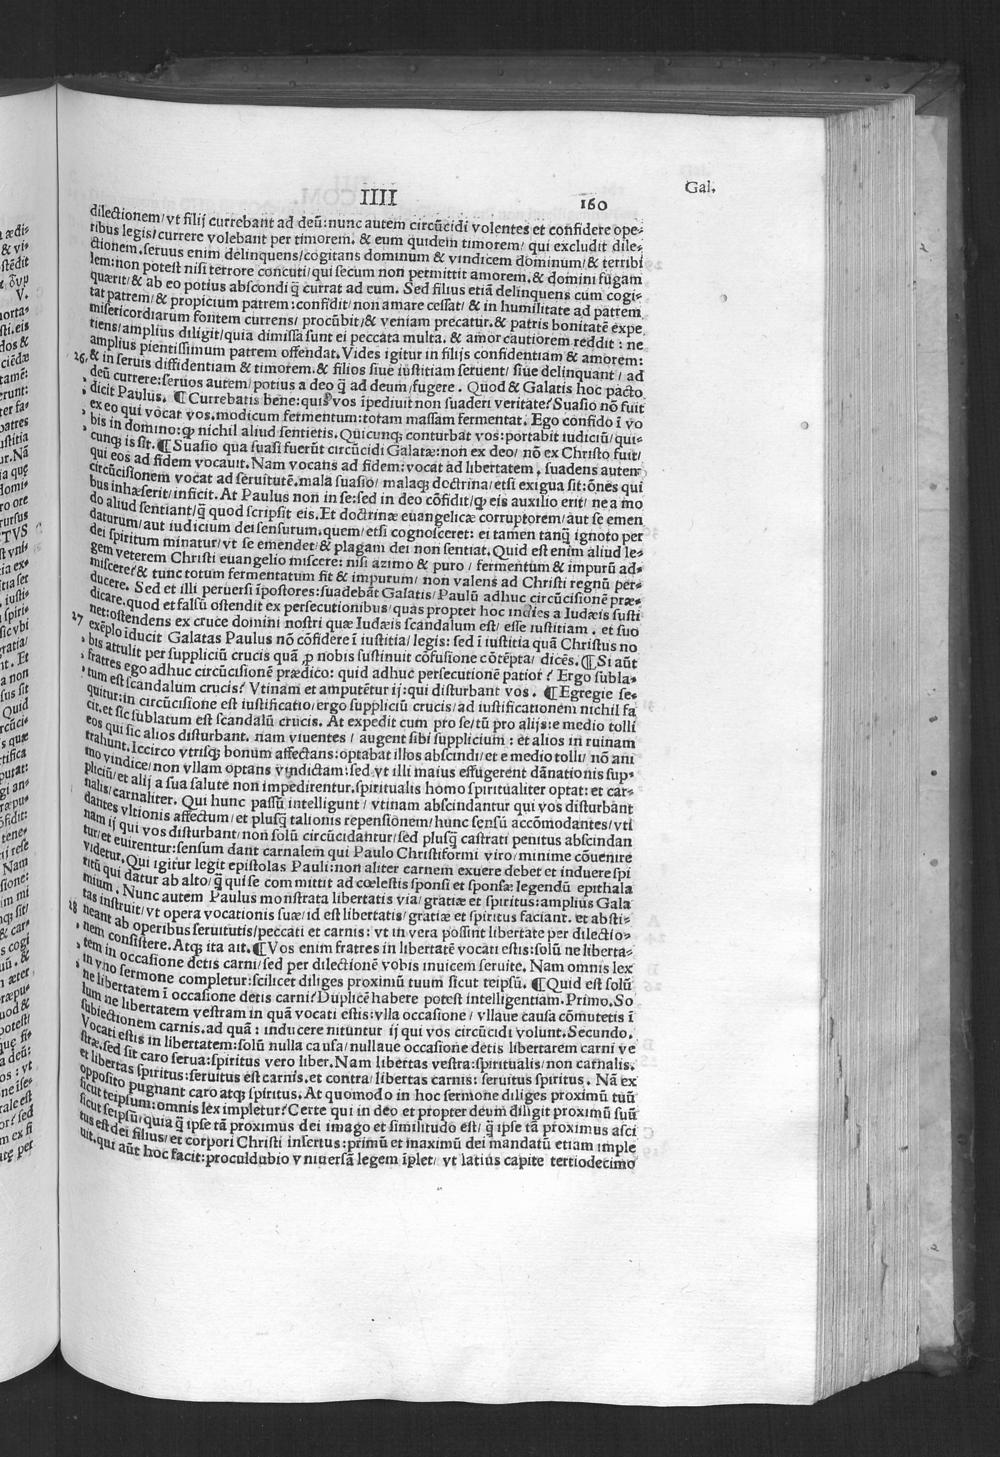 IIII 160 Gal.
dilectionem/vt filij currebant ad deū:nunc autem circūcidi volentes et confidere ope-
ribus legis/currere volebant per timorem. & eum quidem timorem/qui excludit dile-
ctionem.seruus enim delinquens/cogitans dominum & vindicem dominum/& terribi
lem:non potest nisi terrore concuti/qui secum non permittit amorem.& domini fugam
quærit/& ab eo potius abscondi q̄ currat ad eum. Sed filius etiā delinquens cum cogi-
tat patrem/& propicium patrem:confidit/non amare cessat/& in humilitate ad patrem
misericordiarum fontem currens/procūbit/& veniam precatur.& patris bonitatē expe
riens/amplius diligit/quia dimissa sunt ei peccata multa.& amor cautiorem reddit : ne
amplius pientissimum patrem offendat.Vides igitur in filijs confidentiam & amorem:
26, & in seruis diffidentiam & timorem.& filios siue iustitiam seruent/siue delinquant/ad
deū currere:seruos autem/potius a deo q̄ ad deum/fugere. Quod & Galatis hoc pacto
dicit Paulus. ¶ Currebatis bene:quis vos īpediuit non suaderi veritate? Suasio nō fuit
ex eo qui vocat vos.modicum fermentum:totam massam fermentat. Ego confido ī vo
bis in domino:ꝙ nichil aliud sentietis. Quicunqꝫ conturbat vos:portabit iudiciū/qui-
cunqꝫ is sit. ¶ Suasio qua suasi fuerūt circūcidi Galatæ:non ex deo/nō ex Christo fuit/
qui eos ad fidem vocauit. Nam vocans ad fidem:vocat ad libertatem, suadens autem
circūcisionem vocat ad seruitutē.mala suasio/malaqꝫ doctrina/etsi exigua sit:ōnes qui
bus inhæserit/inficit. At Paulus non in se:sed in deo cōfidit/ꝙ eis auxilio erit/ne a mo
do aliud sentiant/q̄ quod scripsit eis.Et doctrinæ euangelicæ corruptorem/aut se emen
daturum/aut iudicium dei sensurum.quem/etsi cognosceret: ei tamen tanq̄ ignoto per
dei spiritum minatur/vt se emendet/& plagam dei non sentiat. Quid est enim aliud le-
gem veterem Christi euangelio miscere: nisi azimo & puro / fermentum & impurū ad-
miscere?& tunc totum fermentatum fit & impurum/ non valens ad Christi regnū per-
ducere. Sed et illi peruersi īpostores:suadebāt Galatis/Paulū adhuc circūcisionē præ-
dicare.quod et falsū ostendit ex persecutionibus/quas propter hoc indies a Iudæis susti
27 net:ostendens ex cruce domini nostri quæ Iudæis scandalum est/ esse iustitiam . et suo
exēplo īducit Galatas Paulus nō cōfidere ī iustitia/legis: sed ī iustitia quā Christus no
bis attulit per suppliciū crucis quā ꝓ nobis sustinuit cōfusione cōtēpta/dicēs. ¶ Si aūt
fratres ego adhuc circūcisionē prædico: quid adhuc persecutionē patior? Ergo subla-
tum est scandalum crucis? Vtinam et amputētur ij:qui disturbant vos. ¶ Egregie se-
quitur:in circūcisione est iustificatio/ergo suppliciū crucis/ad iustificationem nichil fa
cit.et sic sublatum est scandalū crucis. At expedit cum pro se/tū pro alijs:e medio tolli
eos qui sic alios disturbant. nam viuentes / augent sibi supplicium : et alios in ruinam
trahunt.Iccirco vtrisqꝫ bonum affectans:optabat illos abscindi/et e medio tolli/ nō ani
mo vindice/non vllam optans vindictam:sed vt illi maius effugerent dānationis sup-
pliciū/et alij a sua salute non impedirentur.spiritualis homo spiritualiter optat: et car-
nalis/carnaliter. Qui hunc passū intelligunt / vtinam abscindantur qui vos disturbant
dantes vltionis affectum/et plusq̄ talionis repensionem/hunc sensū accōmodantes/vti
nam ij qui vos disturbant/non solū circūcidantur/sed plusq̄ castrati penitus abscindan
tur/et euirentur:sensum dant carnalem qui Paulo Christiformi viro/minime cōuenire
videtur.Qui igitur legit epistolas Pauli:non aliter carnem exuere debet et induere spi
ritū qui datur ab alto/q̄ qui se committit ad cœlestis sponsi et sponsæ legendū epithala
mium. Nunc autem Paulus monstrata libertatis via/gratiæ et spiritus:amplius Gala
tas instruit/vt opera vocationis suæ/id est libertatis/gratiæ et spiritus faciant. et absti-
18 neant ab operibus seruitutis/peccati et carnis: vt in vera possint libertate per dilectio-
nem consistere.Atqꝫ ita ait. ¶ Vos enim fratres in libertatē vocati estis:solū ne liberta-
tem in occasione detis carni/sed per dilectionē vobis inuicem seruite. Nam omnis lex
in vno sermone completur:scilicet diliges proximū tuum sicut teipsū. ¶ Quid est solū
ne libertatem ī occasione detis carni? Duplicē habere potest intelligentiam.Primo.So
lum ne libertatem vestram in quā vocati estis:vlla occasione / vllaue causa cōmutetis ī
subiectionem carnis.ad quā : inducere nituntur ij qui vos circūcidi volunt.Secundo.
Vocati estis in libertatem:solū nulla causa/nullaue occasione detis libertatem carni ve
stræ.sed sit caro serua:spiritus vero liber.Nam libertas vestra:spiritualis/non carnalis.
et libertas spiritus:seruitus est carnis.et contra/libertas carnis: seruitus spiritus. Nā ex
opposito pugnant caro atqꝫ spiritus. At quomodo in hoc sermone diliges proximū tuū
sicut teipsum:omnis lex impletur? Certe qui in deo et propter deum diligit proximū suū
sicut seipsū/quia q̄ ipse tā proximus dei imago et similitudo est/ q̄ ipse tā proximus asci
tus est dei filius/et corpori Christi insertus:primū et maximū dei mandatū etiam imple
uit.qui aūt hoc facit:proculdubio vniuersā legem īplet/ vt latius capite tertiodecimo